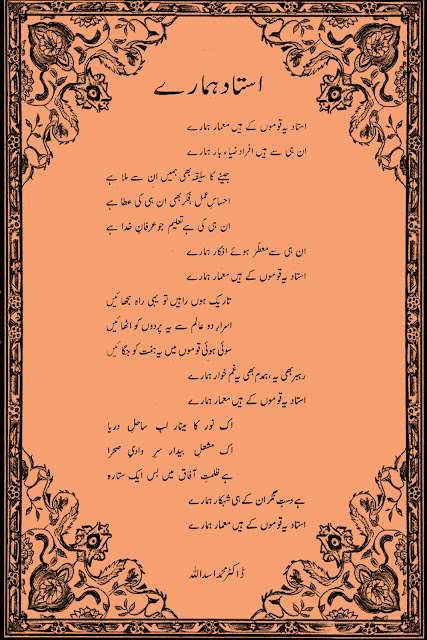 استاد ہمارے
استاد یہ قوموں کے ہیں معمار ہمارے
ان ہی سے ہیں افراد ضیاء بار ہمارے
جینے کا سلیقہ بھی ہمیں اِن سے ملا ہے
احساسِ عمل فکر بھی ان ہی کی عطا ہے
ان ہی کی ہے تعلیم جو عرفانِ خدا ہے
ان ہی سے معطّر ہوئے افکار ہمارے
استاد یہ قوموں کے ہیں معمار ہمارے
تاریک ہوں راہیں تو یہی راہ سجھائیں
اسرارِ دو عالم سے یہ پردوں کو اٹھائیں
سوئی ہوئی قوموں میں یہ ہمت کو جگائیں
رہبر بھی یہ، ہمدم بھی یہ غم خوار ہمارے
استاد یہ قوموں کے ہیں معمار ہمارے
اک نور کا مینار لبِ ساحلِ دریا
اک مشعلِ بیدار سرِ وادیِ صحرا
ہے ظلمتِ آفاق میں بس ایک ستارہ
ہے دستِ نگر ان کے ہی شہکار ہمارے
استاد یہ قوموں کے ہیں معمار ہمارے
ڈاکٹر محمد اسد اللہ